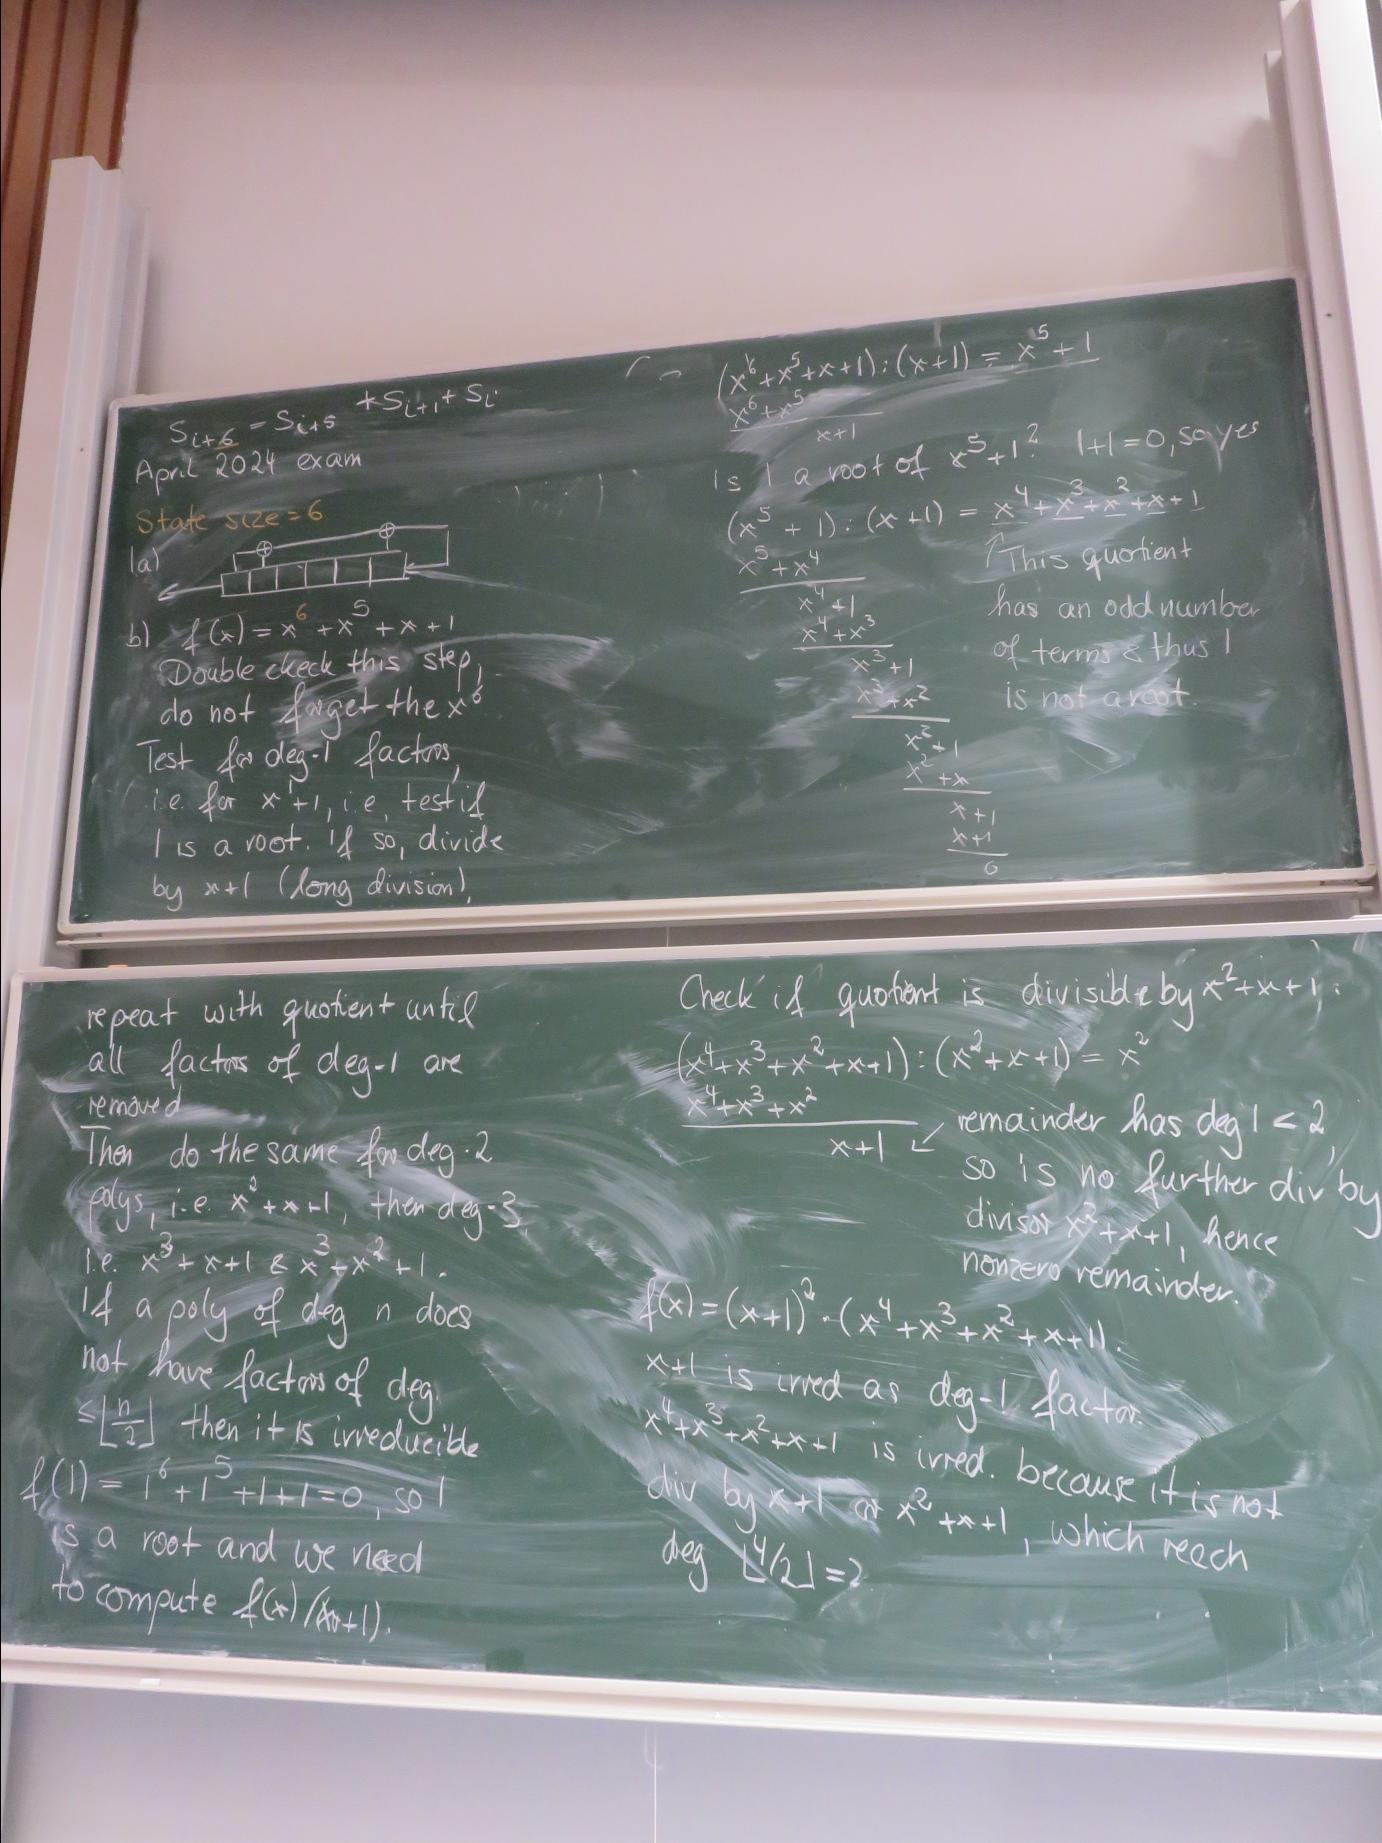 S_{i+6} = S_{i+5} + S_{i+1} + S_i
April 2024 exam
State size = 6
1a)
b) f(x) = x^6 + x^5 + x + 1
Double check this step,
do not forget the x^6
Test for deg-1 factors,
i.e. for x^1+1, i.e, test if
1 is a root. If so, divide
by x+1 (long division),
(x^6+x^5+x+1):(x+1) = x^5+1
x^6+x^5
x+1
Is 1 a root of x^5+1? 1+1=0, so yes
(x^5 + 1):(x+1) = x^4+x^3+x^2+x+1
x^5+x^4
x^4+1
x^4+x^3
x^3+1
x^3+x^2
x^2+1
x^2+x
x+1
x+1
0
This quotient
has an odd number
of terms & thus 1
is not a root.
repeat with quotient until
all factors of deg-1 are
removed
Then do the same for deg-2
polys, i.e. x^2+x+1, then deg-3,
i.e. x^3+x+1 & x^3+x^2+1.
If a poly of deg n does
not have factors of deg.
≤⌊n/2⌋ then it is irreducible
f(1) = 1^6+1^5+1+1=0, so 1
is a root and we need
to compute f(x)/(x+1).
Check if quotient is divisible by x^2+x+1:
(x^4+x^3+x^2+x+1):(x^2+x+1) = x^2
x^4+x^3+x^2
x+1
remainder has deg 1 < 2,
so is no further div by
divisor x^2+x+1, hence
nonzero remainder.
f(x) = (x+1)^2·(x^4+x^3+x^2+x+1).
x+1 is irred as deg-1 factor.
x^4+x^3+x^2+x+1 is irred. because it is not
div by x+1 or x^2+x+1, which reach
deg ⌊4/2⌋=2